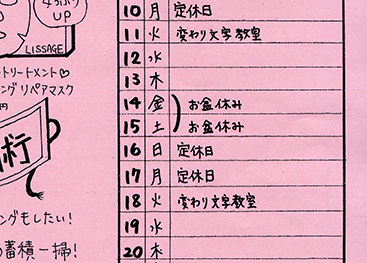 UP
LISSAGE
トリートメント♡
ング リペアマスク
円
術
ングもしたい!
蓄積一掃!
10 月 定休日
11 火 変わり文字教室
12 水
13 木
14 金 お盆休み
15 土 お盆休み
16 日 定休日
17 月 定休日
18 火 変わり文字教室
19 水
20 木